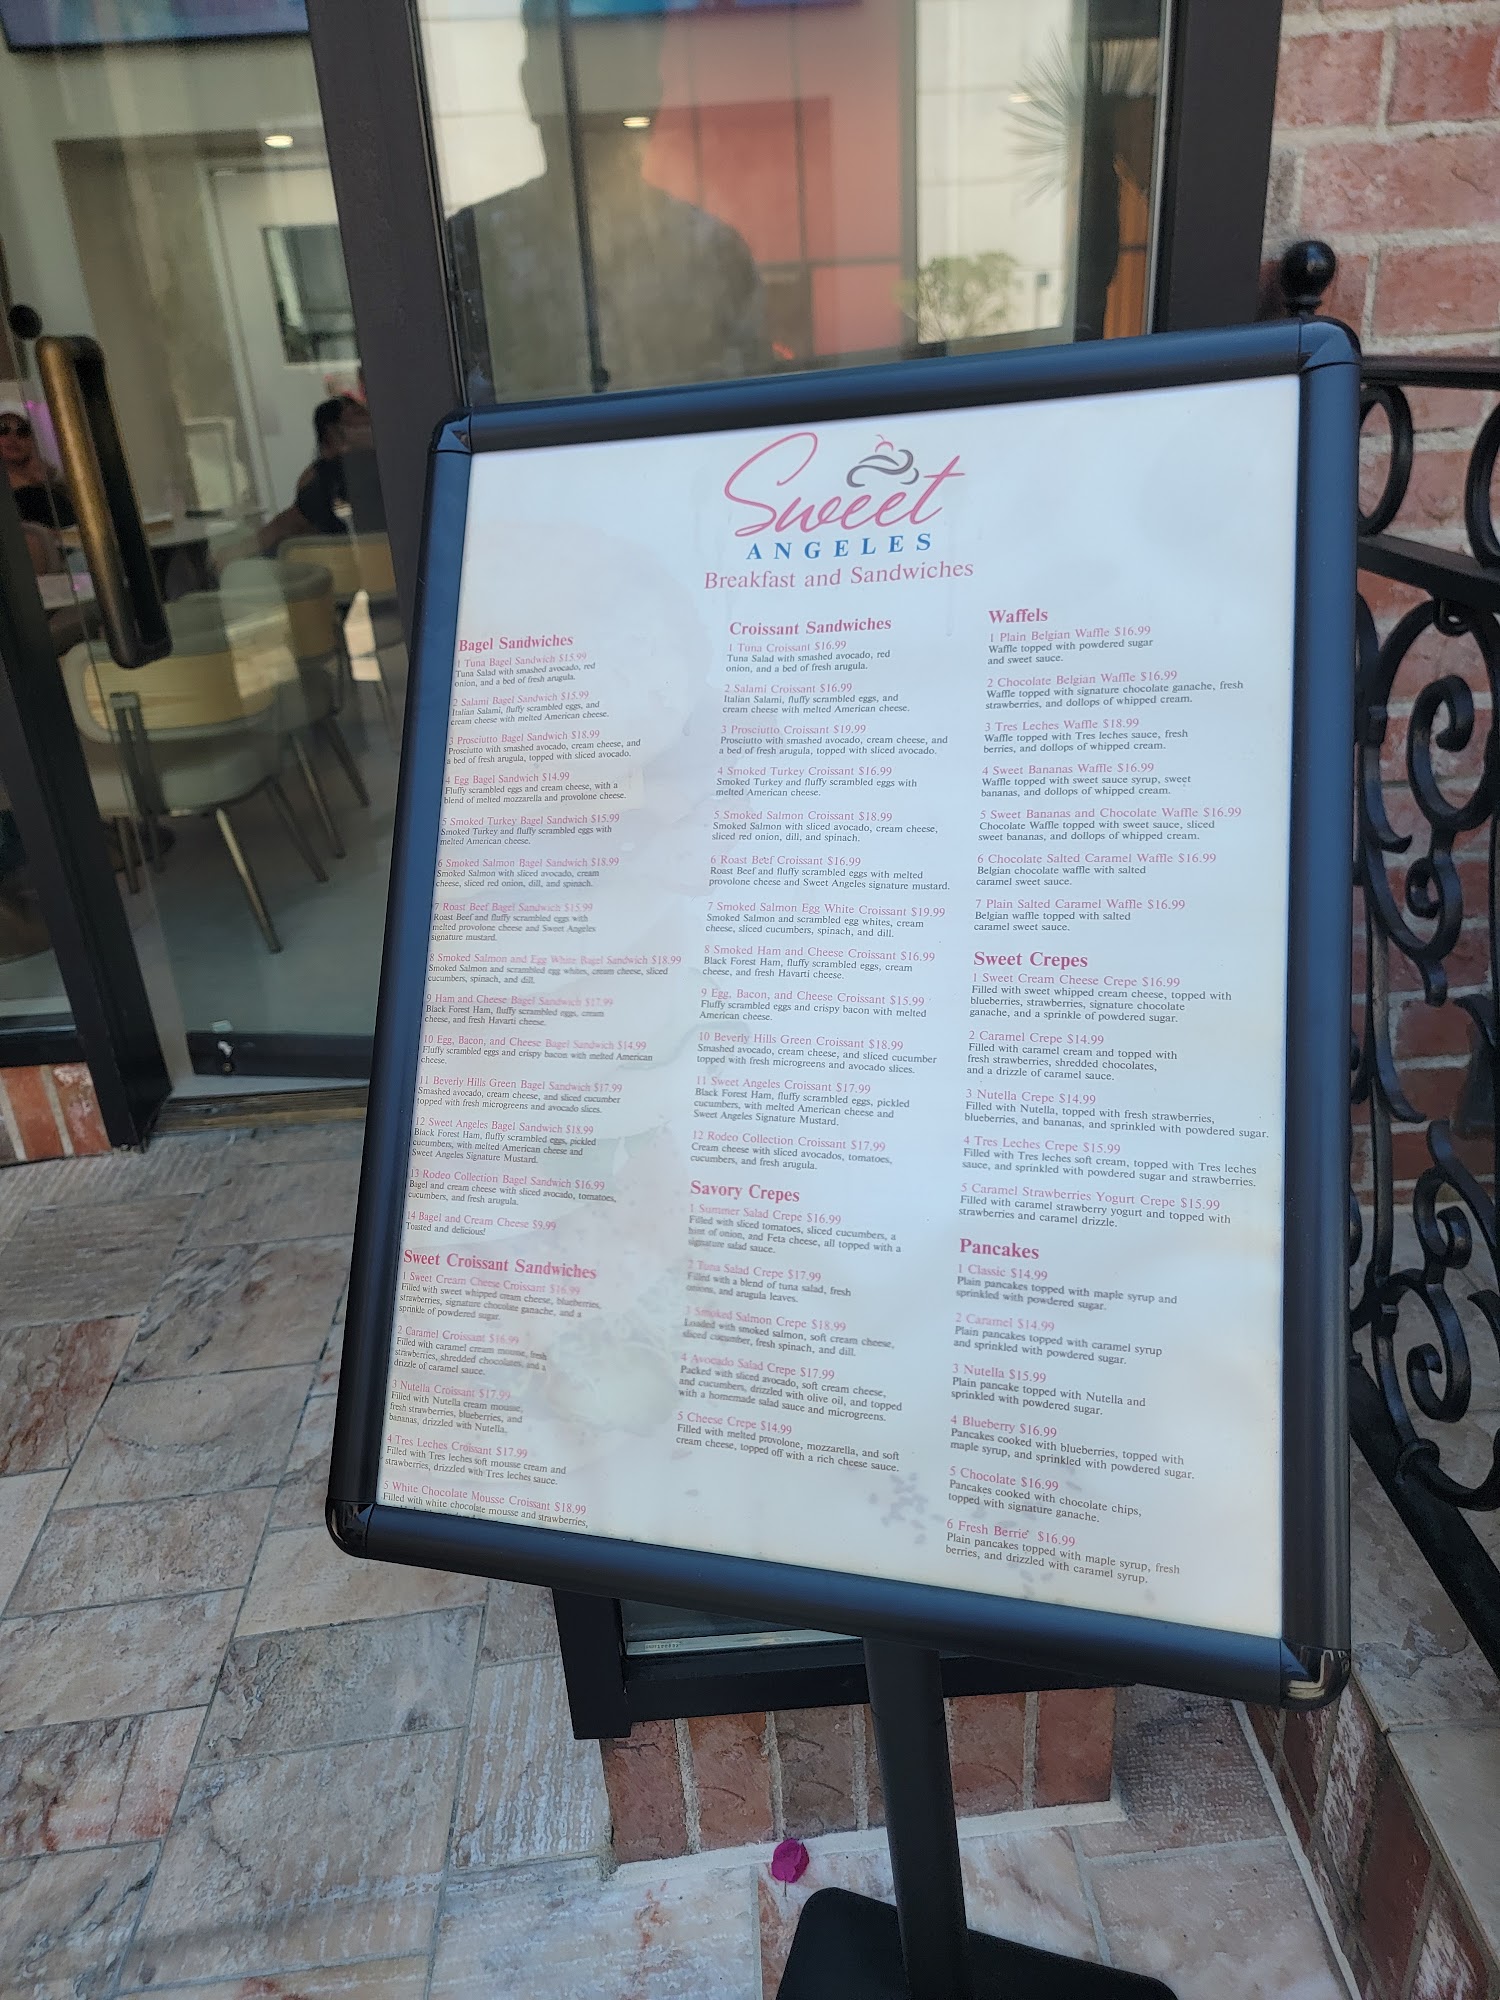 Sweet
ANGELES
Breakfast and Sandwiches
Bagel Sandwiches
1 Tuna Bagel Sandwich $15.99
Tuna Salad with smashed avocado, red
onion, and a bed of fresh arugula.
2 Salami Bagel Sandwich $15.99
Italian Salami, fluffy scrambled eggs, and
cream cheese with melted American cheese.
3 Prosciutto Bagel Sandwich $18.99
Prosciutto with smashed avocado, cream cheese, and
a bed of fresh arugula, topped with sliced avocado.
4 Egg Bagel Sandwich $14.99
Fluffy scrambled eggs and cream cheese, with a
blend of melted mozzarella and provolone cheese.
5 Smoked Turkey Bagel Sandwich $15.99
Smoked Turkey and fluffy scrambled eggs with
melted American cheese.
6 Smoked Salmon Bagel Sandwich $18.99
Smoked Salmon with sliced avocado, cream
cheese, sliced red onion, dill, and spinach.
7 Roast Beef Bagel Sandwich $15.99
Roast Beef and fluffy scrambled eggs with
melted provolone cheese and Sweet Angeles
signature mustard.
8 Smoked Salmon and Egg White Bagel Sandwich $18.99
Smoked Salmon and scrambled egg whites, cream cheese, sliced
cucumbers, spinach, and dill.
9 Ham and Cheese Bagel Sandwich $17.99
Black Forest Ham, fluffy scrambled eggs, cream
cheese, and fresh Havarti cheese.
10 Egg, Bacon, and Cheese Bagel Sandwich $14.99
Fluffy scrambled eggs and crispy bacon with melted American
cheese.
11 Beverly Hills Green Bagel Sandwich $17.99
Smashed avocado, cream cheese, and sliced cucumber
topped with fresh microgreens and avocado slices.
12 Sweet Angeles Bagel Sandwich $18.99
Black Forest Ham, fluffy scrambled eggs, pickled
cucumbers, with melted American cheese and
Sweet Angeles Signature Mustard.
13 Rodeo Collection Bagel Sandwich $16.99
Bagel and cream cheese with sliced avocado, tomatoes,
cucumbers, and fresh arugula.
14 Bagel and Cream Cheese $9.99
Toasted and delicious!
Sweet Croissant Sandwiches
1 Sweet Cream Cheese Croissant $16.99
Filled with sweet whipped cream cheese, blueberries,
strawberries, signature chocolate ganache, and a
sprinkle of powdered sugar.
2 Caramel Croissant $16.99
Filled with caramel cream mousse, fresh
strawberries, shredded chocolates, and a
drizzle of caramel sauce.
3 Nutella Croissant $17.99
Filled with Nutella cream mousse,
fresh strawberries, blueberries, and
bananas, drizzled with Nutella.
4 Tres Leches Croissant $17.99
Filled with Tres leches soft mousse cream and
strawberries, drizzled with Tres leches sauce.
5 White Chocolate Mousse Croissant $18.99
Filled with white chocolate mousse and strawberries,
Croissant Sandwiches
1 Tuna Croissant $16.99
Tuna Salad with smashed avocado, red
onion, and a bed of fresh arugula.
2 Salami Croissant $16.99
Italian Salami, fluffy scrambled eggs, and
cream cheese with melted American cheese.
3 Prosciutto Croissant $19.99
Prosciutto with smashed avocado, cream cheese, and
a bed of fresh arugula, topped with sliced avocado.
4 Smoked Turkey Croissant $16.99
Smoked Turkey and fluffy scrambled eggs with
melted American cheese.
5 Smoked Salmon Croissant $18.99
Smoked Salmon with sliced avocado, cream cheese,
sliced red onion, dill, and spinach.
6 Roast Beef Croissant $16.99
Roast Beef and fluffy scrambled eggs with melted
provolone cheese and Sweet Angeles signature mustard.
7 Smoked Salmon Egg White Croissant $19.99
Smoked Salmon and scrambled egg whites, cream
cheese, sliced cucumbers, spinach, and dill.
8 Smoked Ham and Cheese Croissant $16.99
Black Forest Ham, fluffy scrambled eggs, cream
cheese, and fresh Havarti cheese.
9 Egg, Bacon, and Cheese Croissant $15.99
Fluffy scrambled eggs and crispy bacon with melted
American cheese.
10 Beverly Hills Green Croissant $18.99
Smashed avocado, cream cheese, and sliced cucumber
topped with fresh microgreens and avocado slices.
11 Sweet Angeles Croissant $17.99
Black Forest Ham, fluffy scrambled eggs, pickled
cucumbers, with melted American cheese and
Sweet Angeles Signature Mustard.
12 Rodeo Collection Croissant $17.99
Cream cheese with sliced avocados, tomatoes,
cucumbers, and fresh arugula.
Savory Crepes
1 Summer Salad Crepe $16.99
Filled with sliced tomatoes, sliced cucumbers, a
hint of onion, and Feta cheese, all topped with a
signature salad sauce.
2 Tuna Salad Crepe $17.99
Filled with a blend of tuna salad, fresh
onions, and arugula leaves.
3 Smoked Salmon Crepe $18.99
Loaded with smoked salmon, soft cream cheese,
sliced cucumber, fresh spinach, and dill.
4 Avocado Salad Crepe $17.99
Packed with sliced avocado, soft cream cheese,
and cucumbers, drizzled with olive oil, and topped
with a homemade salad sauce and microgreens.
5 Cheese Crepe $14.99
Filled with melted provolone, mozzarella, and soft
cream cheese, topped off with a rich cheese sauce.
Waffels
1 Plain Belgian Waffle $16.99
Waffle topped with powdered sugar
and sweet sauce.
2 Chocolate Belgian Waffle $16.99
Waffle topped with signature chocolate ganache, fresh
strawberries, and dollops of whipped cream.
3 Tres Leches Waffle $18.99
Waffle topped with Tres leches sauce, fresh
berries, and dollops of whipped cream.
4 Sweet Bananas Waffle $16.99
Waffle topped with sweet sauce syrup, sweet
bananas, and dollops of whipped cream.
5 Sweet Bananas and Chocolate Waffle $16.99
Chocolate Waffle topped with sweet sauce, sliced
sweet bananas, and dollops of whipped cream.
6 Chocolate Salted Caramel Waffle $16.99
Belgian chocolate waffle with salted
caramel sweet sauce.
7 Plain Salted Caramel Waffle $16.99
Belgian waffle topped with salted
caramel sweet sauce.
Sweet Crepes
1 Sweet Cream Cheese Crepe $16.99
Filled with sweet whipped cream cheese, topped with
blueberries, strawberries, signature chocolate
ganache, and a sprinkle of powdered sugar.
2 Caramel Crepe $14.99
Filled with caramel cream and topped with
fresh strawberries, shredded chocolates,
and a drizzle of caramel sauce.
3 Nutella Crepe $14.99
Filled with Nutella, topped with fresh strawberries,
blueberries, and bananas, and sprinkled with powdered sugar.
4 Tres Leches Crepe $15.99
Filled with Tres leches soft cream, topped with Tres leches
sauce, and sprinkled with powdered sugar and strawberries.
5 Caramel Strawberries Yogurt Crepe $15.99
Filled with caramel strawberry yogurt and topped with
strawberries and caramel drizzle.
Pancakes
1 Classic $14.99
Plain pancakes topped with maple syrup and
sprinkled with powdered sugar.
2 Caramel $14.99
Plain pancakes topped with caramel syrup
and sprinkled with powdered sugar.
3 Nutella $15.99
Plain pancake topped with Nutella and
sprinkled with powdered sugar.
4 Blueberry $16.99
Pancakes cooked with blueberries, topped with
maple syrup, and sprinkled with powdered sugar.
5 Chocolate $16.99
Pancakes cooked with chocolate chips,
topped with signature ganache.
6 Fresh Berrie $16.99
Plain pancakes topped with maple syrup, fresh
berries, and drizzled with caramel syrup.